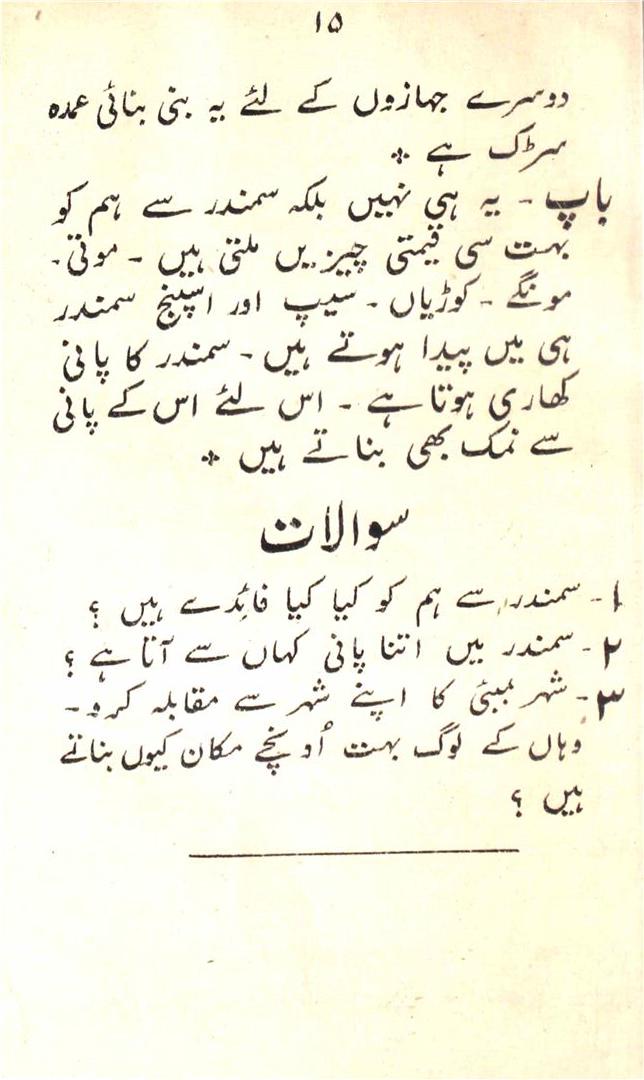 ۱۵
دوسرے جہازوں کے لئے یہ بنی بنائی عمدہ
سڑک ہے ٭
باپ - یہ ہی نہیں بلکہ سمندر سے ہم کو
بہت سی قیمتی چیزیں ملتی ہیں - موتی -
مونگے - کوڑیاں - سیپ اور اسپنج سمندر
ہی میں پیدا ہوتے ہیں - سمندر کا پانی
کھاری ہوتا ہے - اس لئے اس کے پانی
سے نمک بھی بناتے ہیں ٭
سوالات
۱- سمندر سے ہم کو کیا کیا فائدے ہیں ؟
۲- سمندر میں اتنا پانی کہاں سے آتا ہے ؟
۳- شہر بمبئی کا اپنے شہر سے مقابلہ کرو -
وہاں کے لوگ بہت اُونچے مکان کیوں بناتے
ہیں ؟